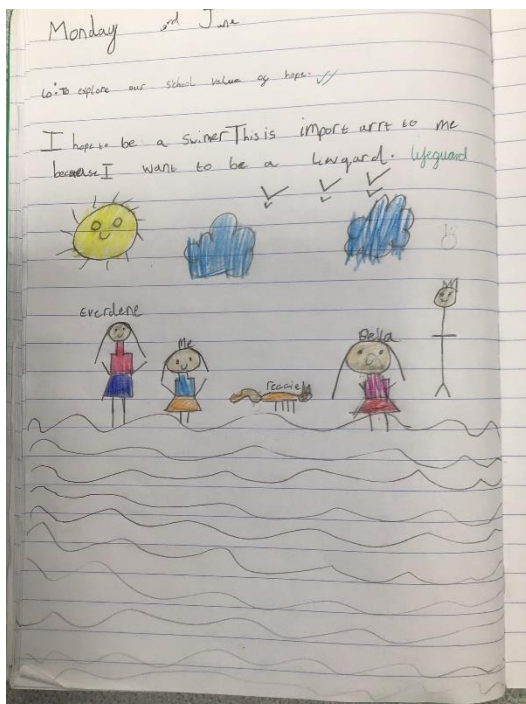 Monday 3rd June
Lo: To explore our school value of hope.
I hope to be a swimer This is import arrt to me
because I want to be a liwgard. lifeguard
Everdene
Me
reggie
Bella